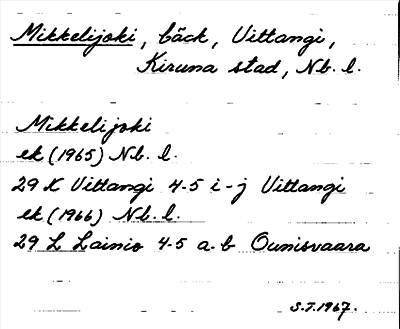 Mikkelijoki, bäck, Vittangi,
Kiruna stad, Nb. l.
Mikkelijoki
ek (1965) Nb. l.
29 K Vittangi 4-5 i-j Vittangi
ek (1966) Nb. l.
29 L Lainio 4-5 a-b Ounisvaara
S.J. 1967.